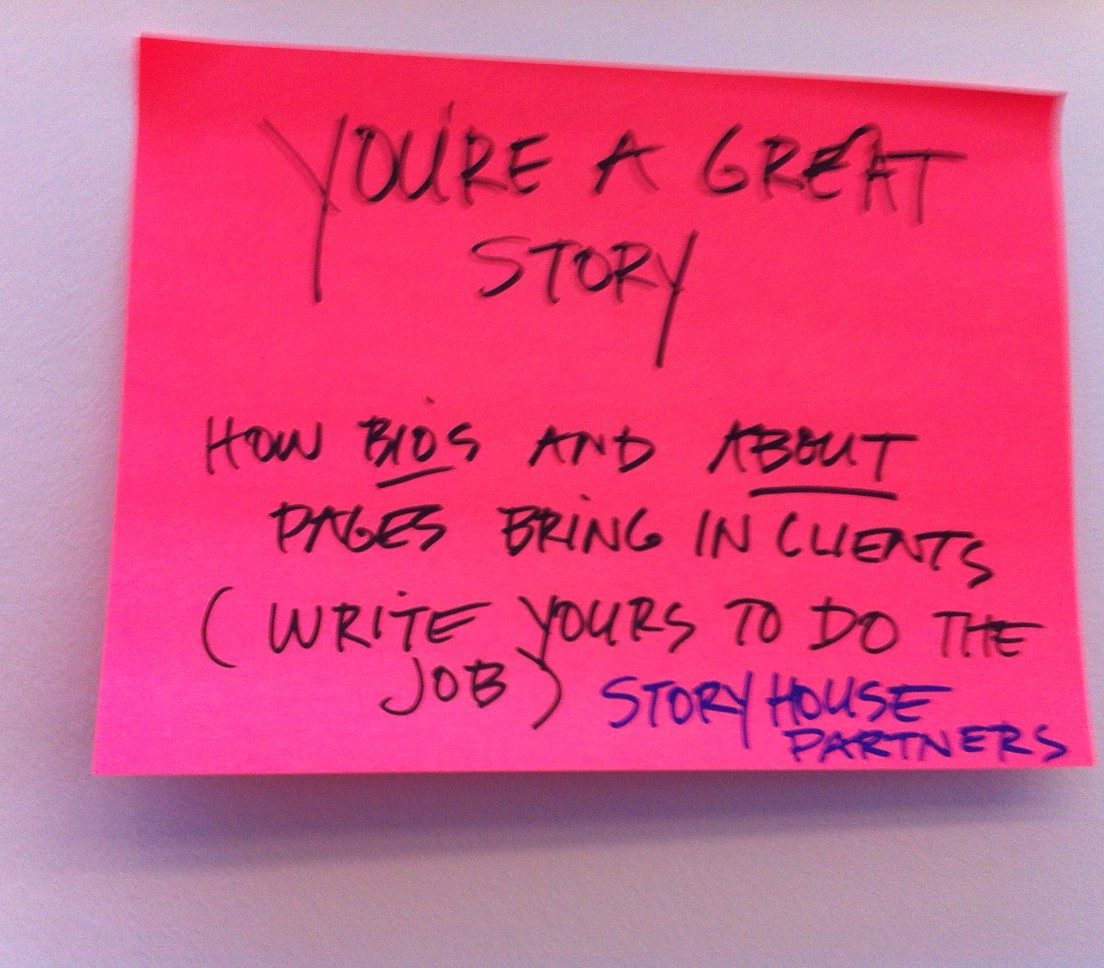 YOU'RE A GREAT
STORY
HOW BIO'S AND ABOUT
PAGES BRING IN CLIENTS
(WRITE YOURS TO DO THE
JOB) STORY HOUSE
PARTNERS